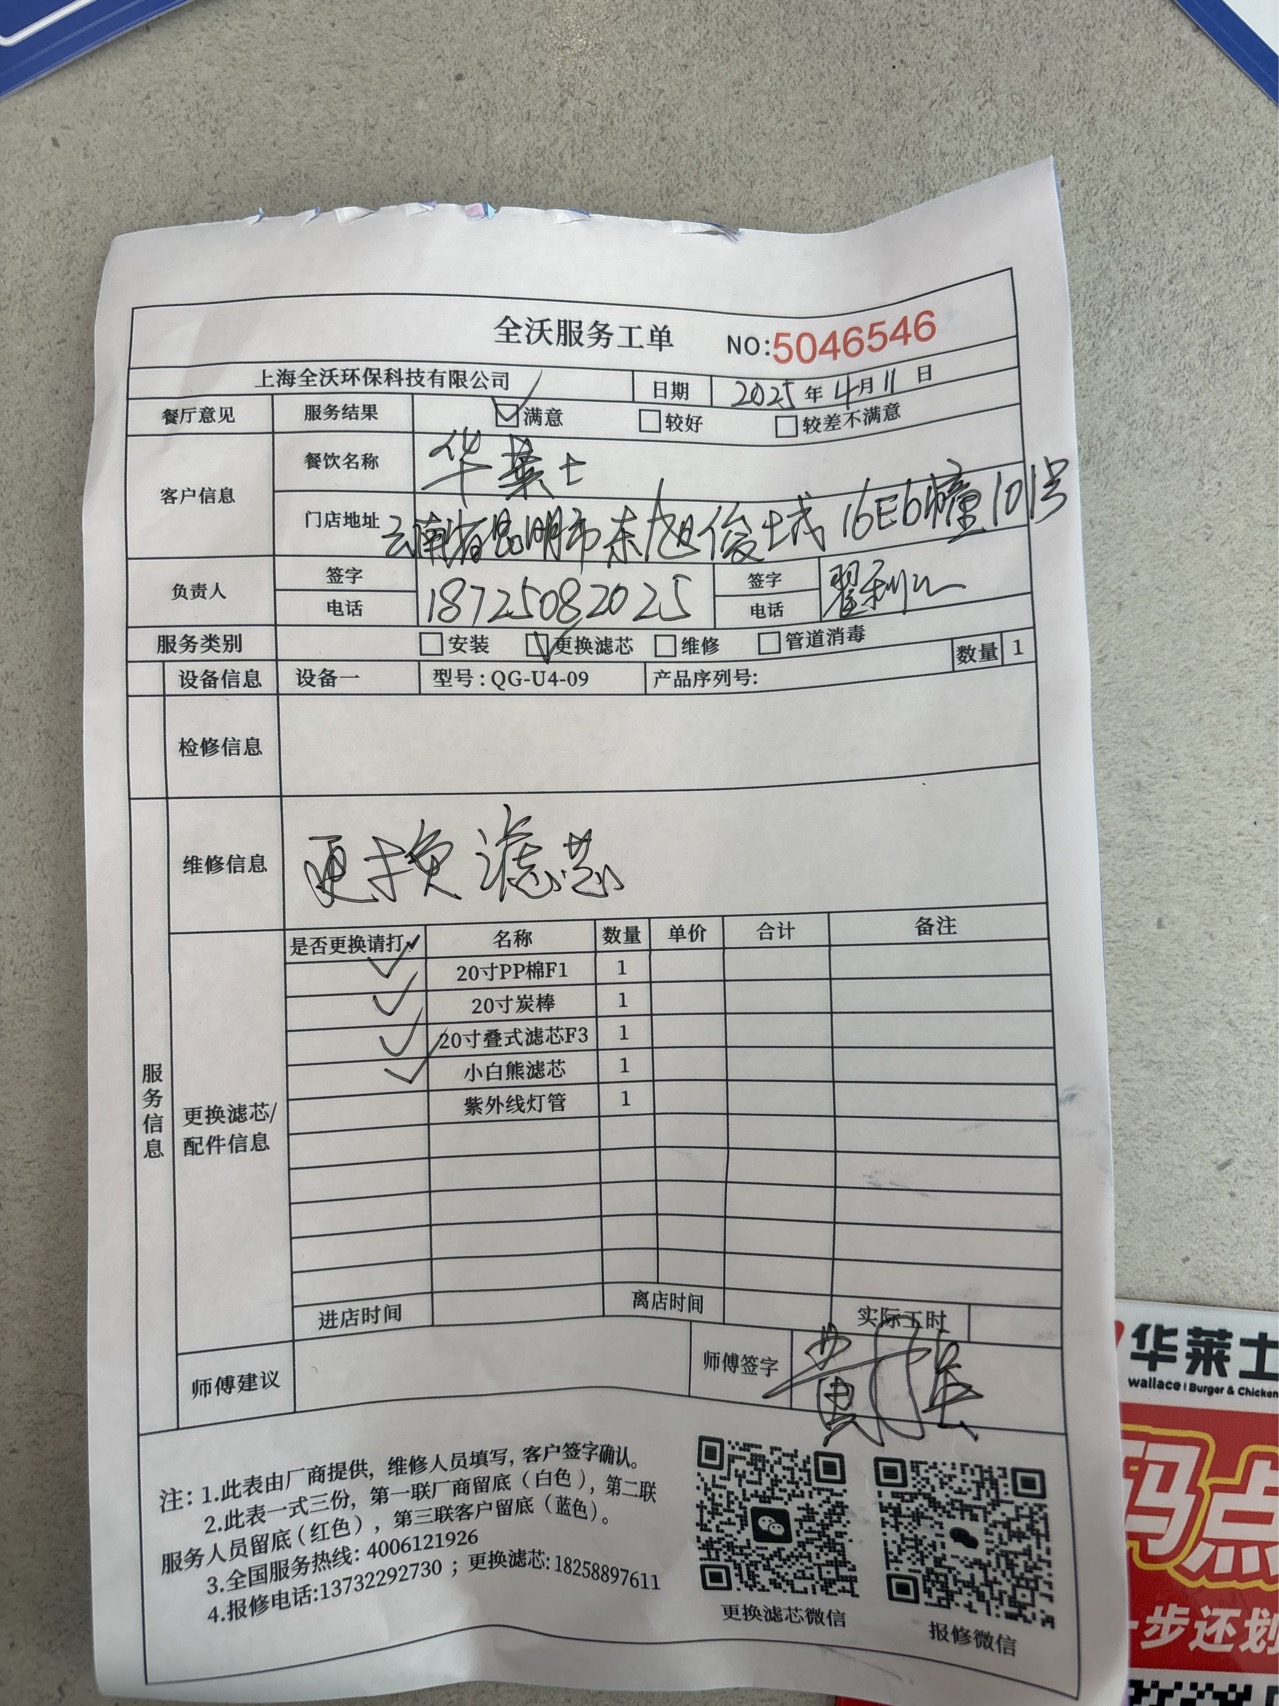 全沃服务工单 NO:5046546
上海全沃环保科技有限公司 日期 2025年4月11日
餐厅意见 服务结果 满意 较好 较差不满意
客户信息 餐饮名称 华莱士
门店地址 云南省昆明市东旭俊城16E6幢101号
负责人 签字 电话 18725082025 签字 电话
服务类别 安装 更换滤芯 维修 管道消毒
设备信息 设备一 型号：QG-U4-09 产品序列号： 数量 1
检修信息
维修信息 更换滤芯
服务信息
更换滤芯/
配件信息
是否更换请打✓ 名称 数量 单价 合计 备注
✓ 20寸PP棉F1 1
✓ 20寸炭棒 1
✓ 20寸叠式滤芯F3 1
✓ 小白熊滤芯 1
紫外线灯管 1
进店时间 离店时间 实际工时
师傅建议 师傅签字
注：1.此表由厂商提供，维修人员填写，客户签字确认。
2.此表一式三份，第一联厂商留底（白色），第二联
服务人员留底（红色），第三联客户留底（蓝色）。
3.全国服务热线：4006121926
4.报修电话:13732292730；更换滤芯:18258897611
更换滤芯微信 报修微信
华莱士
wallace | Burger & Chicken
码点
一步还划